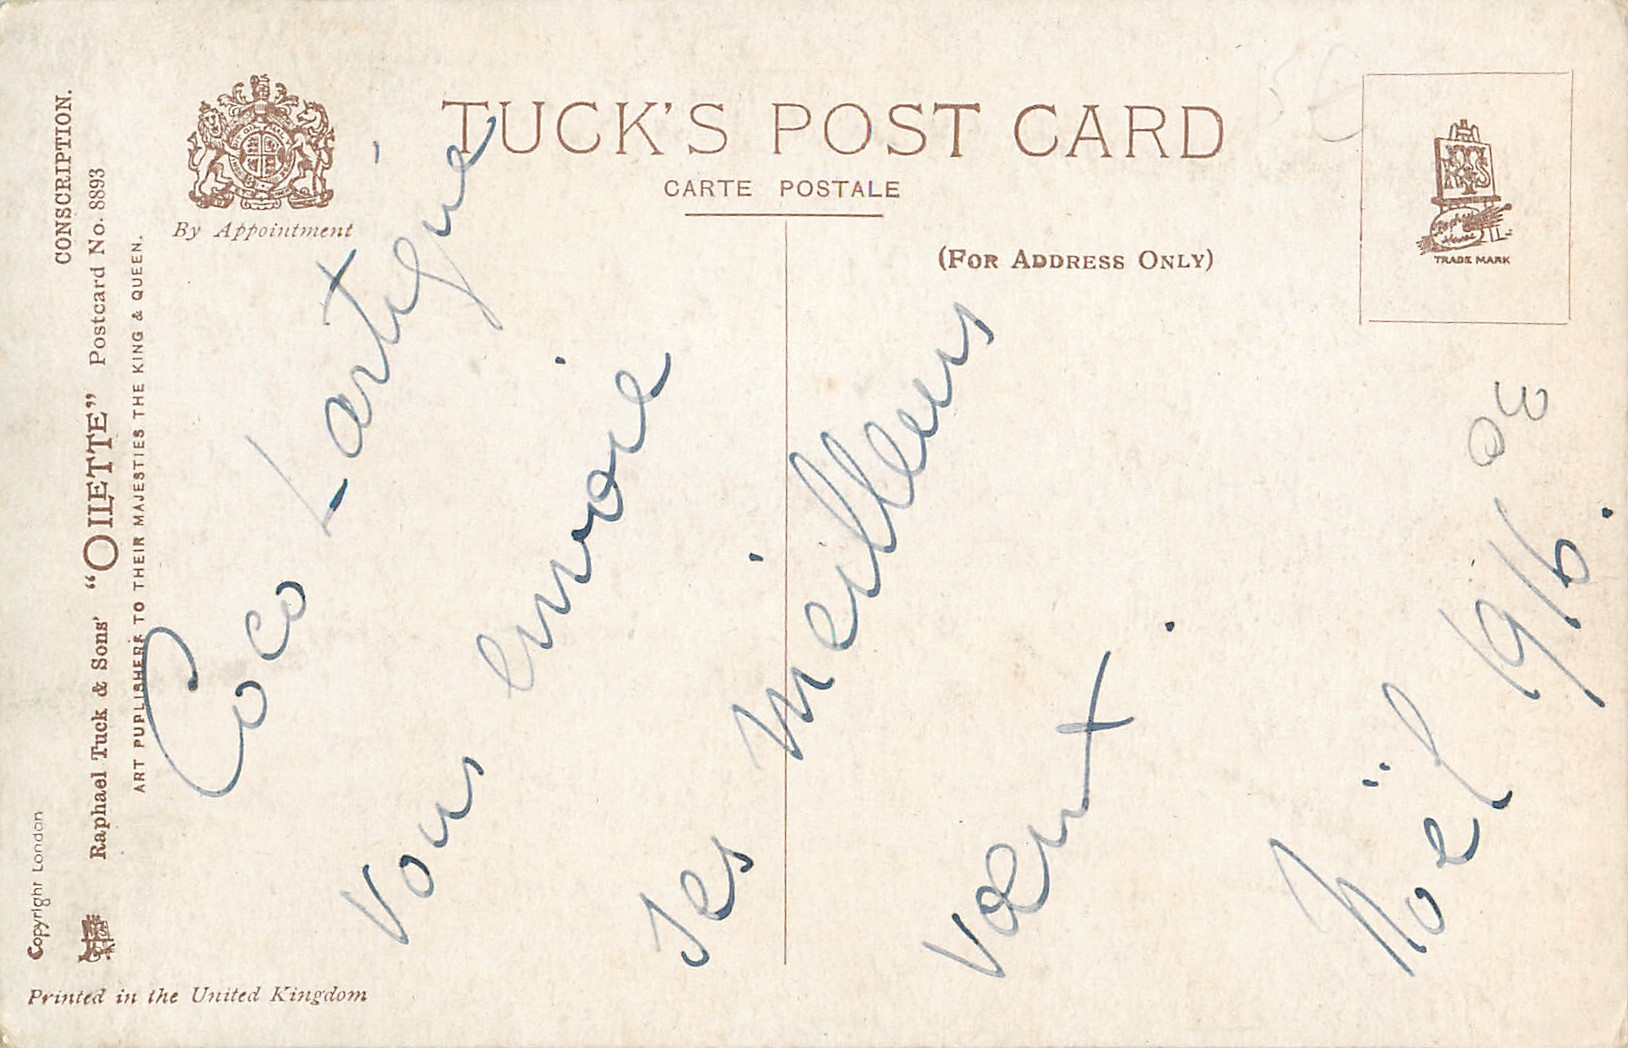 TUCK'S POST CARD
CARTE POSTALE
(FOR ADDRESS ONLY)
By Appointment
CONSCRIPTION.
Raphael Tuck & Sons' “OILETTE” Postcard No. 8893
ART PUBLISHERS TO THEIR MAJESTIES THE KING & QUEEN.
Copyright London
Printed in the United Kingdom
TRADE MARK
Coco Lartigue
vous envoie
ses meilleurs
vœux.
Noël 1916.
30